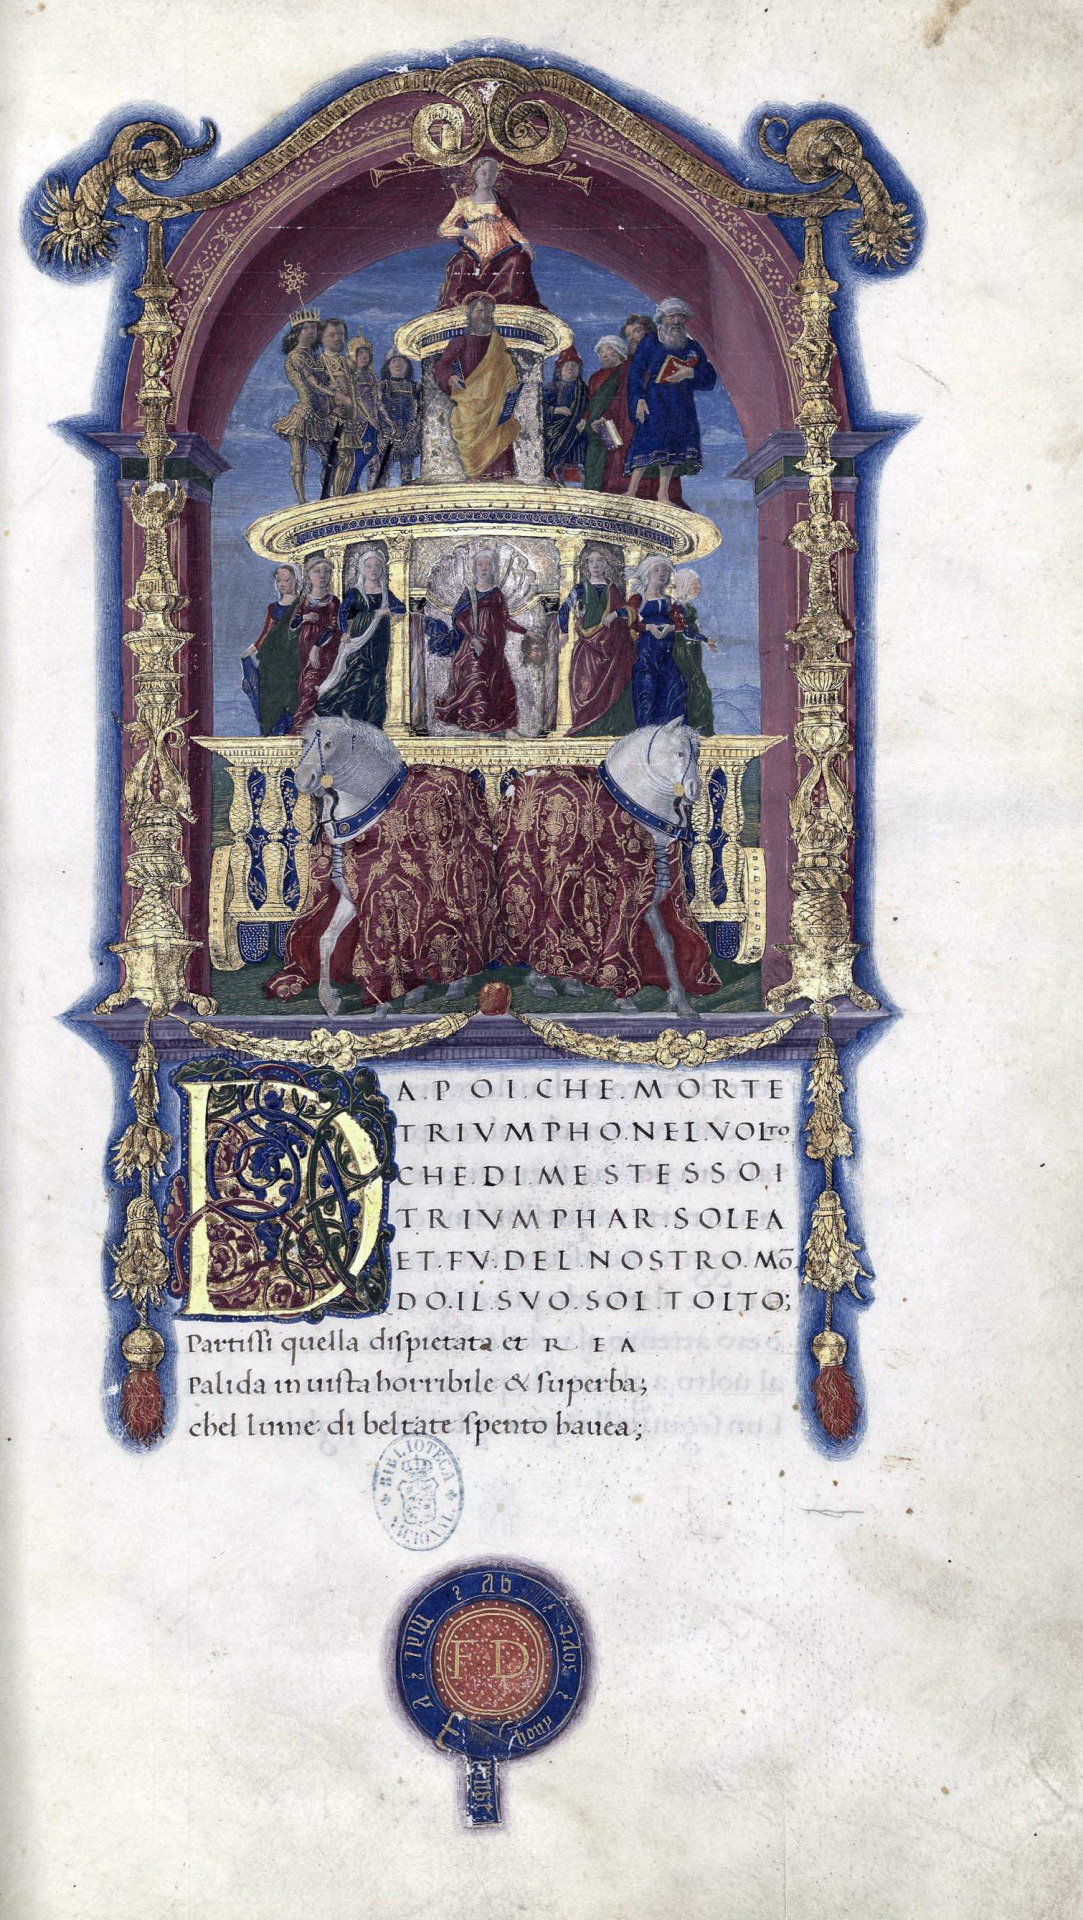 DA.POI.CHE.MORTE
TRIVMPHO.NEL.VOLTO
CHE.DI.ME STESSO I
TRIVMPHAR.SOLEA
ET.FV.DEL.NOSTRO.MŌ
DO.IL.SVO.SOL.TOLTO;
Partissi quella dispietata et REA
Palida in uista horribile & superba;
chel lume di beltate spento hauea;
BIBLIOTECA NACIONAL
hony soyt Ab Mal A
penst
F D